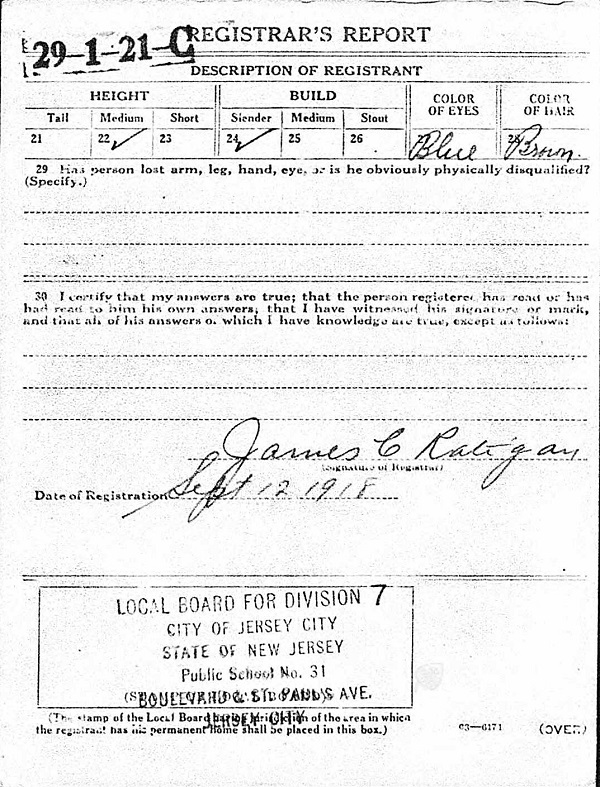 REGISTRAR'S REPORT
29-1-21-C
DESCRIPTION OF REGISTRANT
HEIGHT BUILD COLOR OF EYES COLOR OF HAIR
Tall Medium Short Slender Medium Stout
21 22 ✓ 23 24 ✓ 25 26 Blue 28 Brown
29 Has person lost arm, leg, hand, eye, or is he obviously physically disqualified?
(Specify.)
30 I certify that my answers are true; that the person registered has read or has
had read to him his own answers; that I have witnessed his signature or mark,
and that all of his answers of which I have knowledge are true, except as follows:
James C Ratigan
(Signature of Registrar)
Date of Registration Sept 12 1918
LOCAL BOARD FOR DIVISION 7
CITY OF JERSEY CITY
STATE OF NEW JERSEY
Public School No. 31
BOULEVARD & ST. PAUL'S AVE.
JERSEY CITY
(The stamp of the Local Board having jurisdiction of the area in which
the registrant has his permanent home shall be placed in this box.)
03—6171 (OVER)